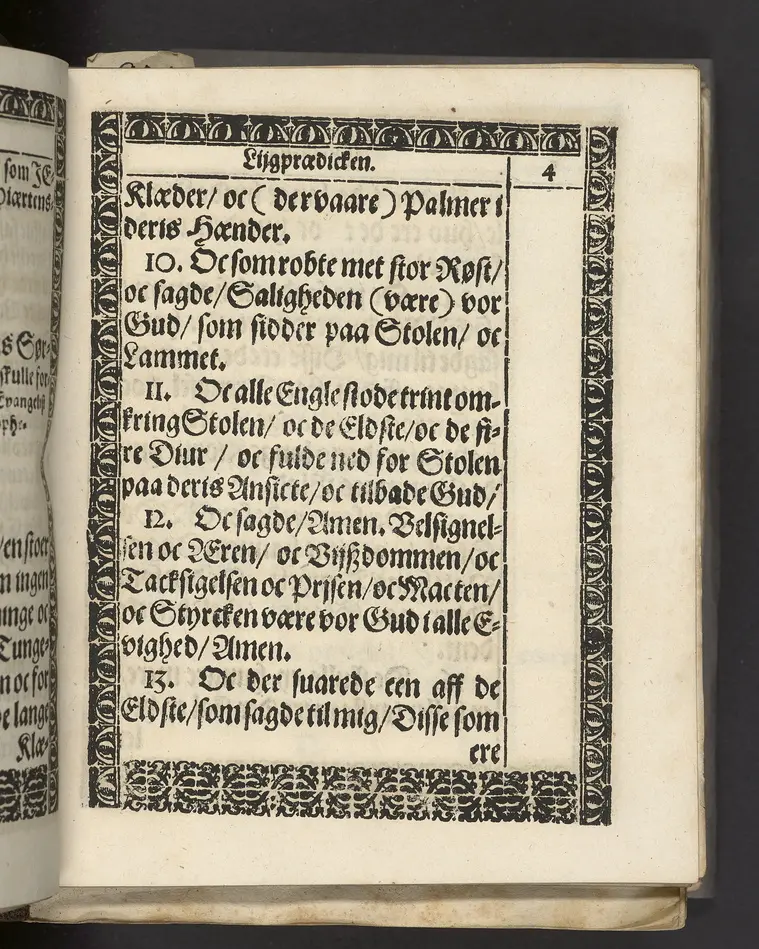 som JE-
s Sør-
skulle for
Evangelist
/en stoer
n ingen
minge oc
Tunge-
n oc for
e lange
Klæ-
Lijgprædicken.
4
Klæder/ oc ( der vaare ) Palmer i
deris Hænder.
10. Oc som robte met stor Røst/
oc sagde/ Saligheden (være) vor
Gud/ som sidder paa Stolen/ oc
Lammet.
11. Oc alle Engle stode trint om-
kring Stolen/ oc de Eldste/ oc de fi-
re Diur / oc fulde ned for Stolen
paa deris Ansicte/ oc tilbade Gud/
12. Oc sagde/ Amen. Velsignel-
sen oc Æren/ oc Vijßdommen/ oc
Tacksigelsen oc Prjsen/ oc Macten/
oc Styrcken være vor Gud i alle E-
vighed/ Amen.
13. Oc der suarede een aff de
Eldste/ som sagde til mig/ Disse som
ere